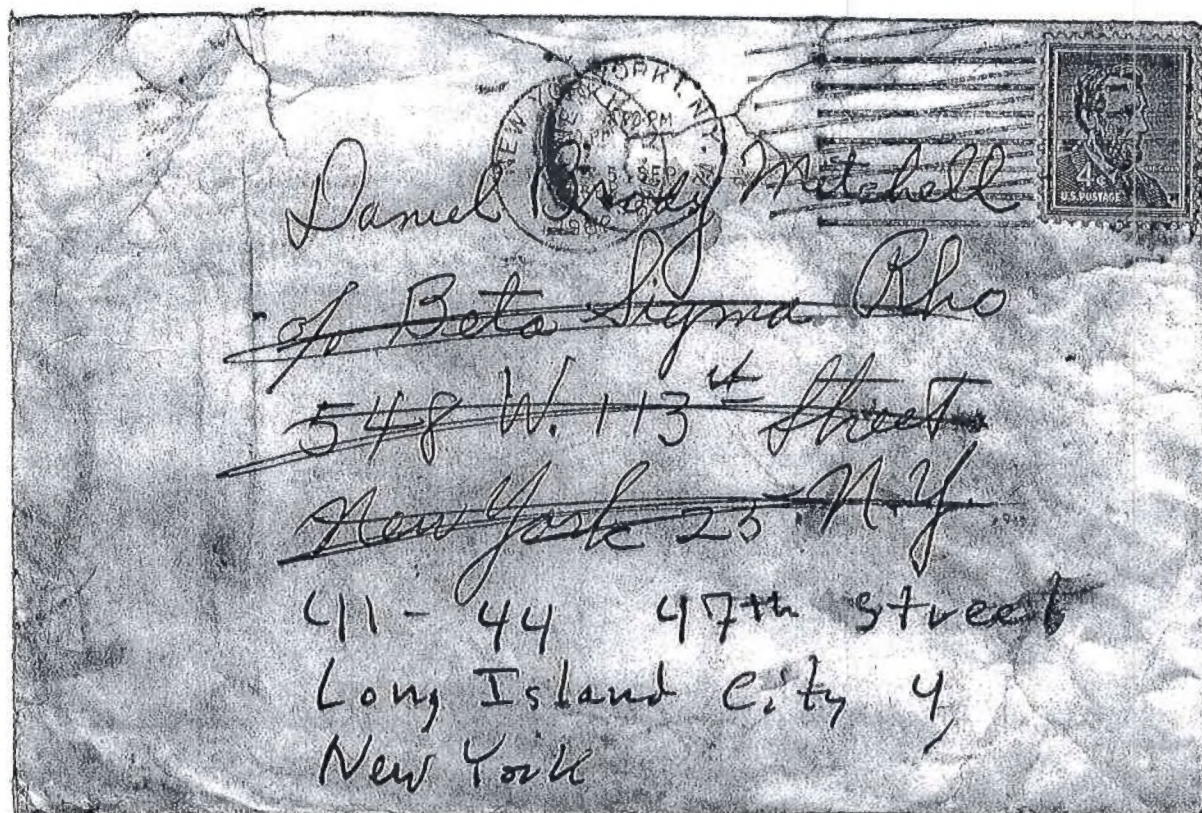 NEW YORK 1, N.Y.
PM
5 SEP
4¢
U.S. POSTAGE
Daniel Brody Mitchell
c/o Beta Sigma Rho
548 W. 113th Street
New York 25 N.Y.
41-44 47th street
Long Island City 4,
New York